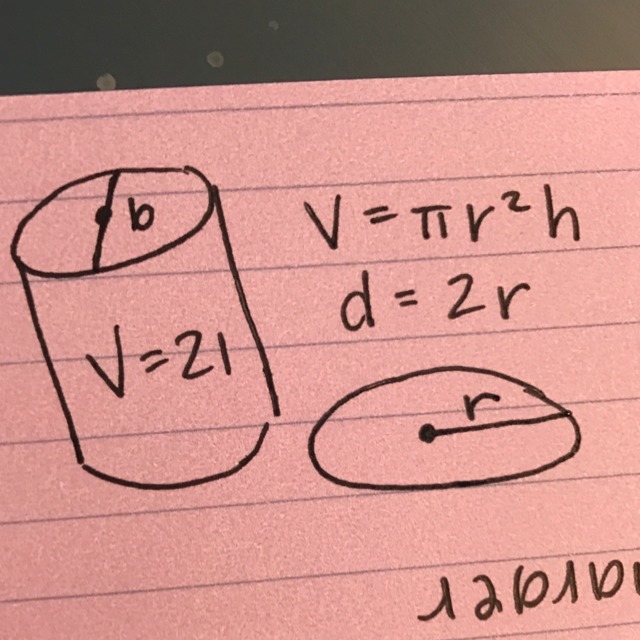 b
V=21
V=πr²h
d=2r
r